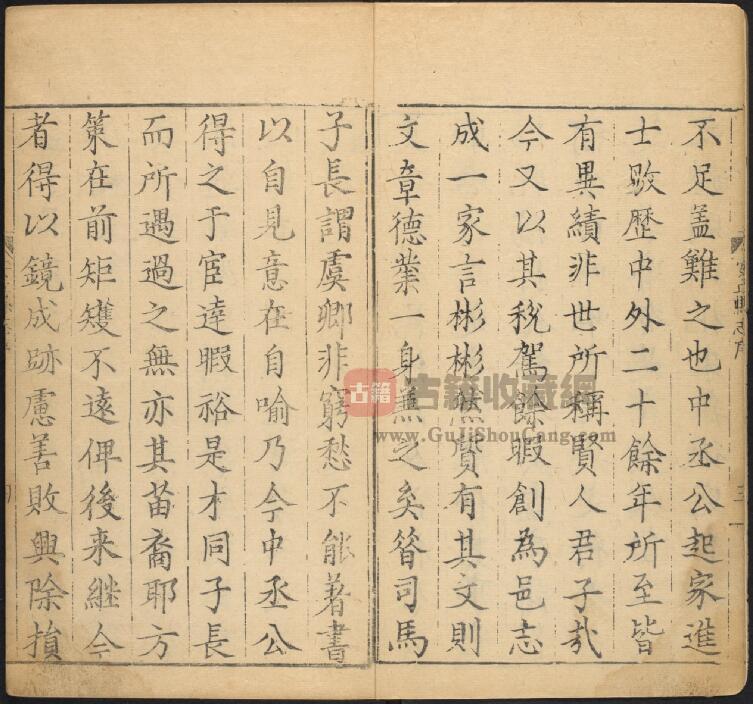 不足盖難之也中丞公起家進
士敭歷中外二十餘年所至皆
有異績非世所稱賢人君子㢤
今又以其稅駕餘暇創為邑志
成一家言彬彬然質有其文則
文章德業一身兼之矣昝司馬
子長謂虞卿非窮愁不能著書
以自見意在自喻乃今中丞公
得之于宦逹暇裕是才同子長
而所遇過之無亦其苖裔耶方
策在前矩矱不遠俾後来継今
者得以鏡成跡慮善敗興除損
古籍
古籍收藏網
www.GuJiShouCang.com